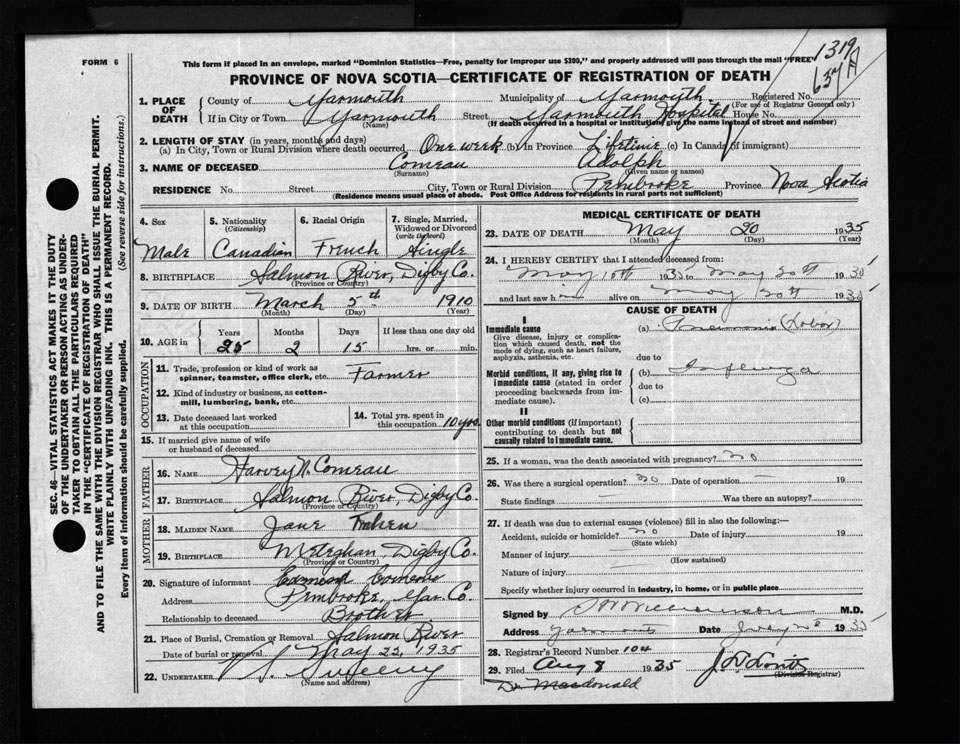 FORM 6
This form if placed in an envelope, marked "Dominion Statistics—Free, penalty for improper use $300," and properly addressed will pass through the mail "FREE"
1319
637 A
PROVINCE OF NOVA SCOTIA—CERTIFICATE OF REGISTRATION OF DEATH
Registered No.
(For use of Registrar General only)
1. PLACE OF DEATH
County of Yarmouth Municipality of Yarmouth
If in City or Town Yarmouth Street Yarmouth Hospital House No.
(Name) (If death occurred in a hospital or institution, give the name instead of street and number)
2. LENGTH OF STAY (in years, months and days)
(a) In City, Town or Rural Division where death occurred One week (b) In Province Lifetime (c) In Canada (if immigrant)
3. NAME OF DECEASED Comeau Adolph
(Surname) (Given name or names)
RESIDENCE No. Street City, Town or Rural Division Pembroke Province Nova Scotia
(Residence means usual place of abode. Post Office Address for residents in rural parts not sufficient)
SEC. 46—VITAL STATISTICS ACT MAKES IT THE DUTY
OF THE UNDERTAKER OR PERSON ACTING AS UNDER-
TAKER TO OBTAIN ALL THE PARTICULARS REQUIRED
IN THE "CERTIFICATE OF REGISTRATION OF DEATH"
AND TO FILE THE SAME WITH THE DIVISION REGISTRAR WHO SHALL ISSUE THE BURIAL PERMIT.
WRITE PLAINLY WITH UNFADING INK. THIS IS A PERMANENT RECORD.
Every item of information should be carefully supplied. (See reverse side for instructions.)
4. Sex
Male
5. Nationality
(Citizenship)
Canadian
6. Racial Origin
French
7. Single, Married,
Widowed or Divorced
(write the word)
Single
8. BIRTHPLACE Salmon River, Digby Co.
(Province or Country)
9. DATE OF BIRTH March 5th 1910
(Month) (Day) (Year)
10. AGE in Years Months Days If less than one day old
25 2 15 hrs. or min.
OCCUPATION
11. Trade, profession or kind of work as
spinner, teamster, office clerk, etc. Farmer
12. Kind of industry or business, as cotton-
mill, lumbering, bank, etc.
13. Date deceased last worked
at this occupation
14. Total yrs. spent in
this occupation 10 yrs.
15. If married give name of wife
or husband of deceased
FATHER
16. NAME Harvey N. Comeau
17. BIRTHPLACE Salmon River, Digby Co.
(Province or Country)
MOTHER
18. MAIDEN NAME Jane
19. BIRTHPLACE Meteghan, Digby Co.
(Province or Country)
20. Signature of informant Comeau
Address Pembrooke, Yar. Co.
Relationship to deceased Brother
21. Place of Burial, Cremation or Removal Salmon River
Date of burial or removal May 22, 1935
22. UNDERTAKER Sweeny
(Name and address)
MEDICAL CERTIFICATE OF DEATH
23. DATE OF DEATH May 20 1935
(Month) (Day) (Year)
24. I HEREBY CERTIFY that I attended deceased from:
May 10th 1935 to May 20th 1935
and last saw him alive on May 20th 1935
CAUSE OF DEATH
I
Immediate cause
Give disease, injury or complica-
tion which caused death, not the
mode of dying, such as heart failure,
asphyxia, asthenia, etc.
(a) Pneumonia (Lobar)
due to
Morbid conditions, if any, giving rise to
immediate cause (stated in order
proceeding backwards from im-
mediate cause).
(b) Influenza
due to
(c)
II
Other morbid conditions (if important)
contributing to death but not
causally related to immediate cause.
25. If a woman, was the death associated with pregnancy? no
26. Was there a surgical operation? no Date of operation 19
State findings Was there an autopsy?
27. If death was due to external causes (violence) fill in also the following:—
Accident, suicide or homicide? no Date of injury 19
(State which)
Manner of injury
(How sustained)
Nature of injury
Specify whether injury occurred in industry, in home, or in public place
Signed by M.D.
Address Yarmouth Date July 1935
28. Registrar's Record Number 104
29. Filed Aug 8 1935
(Division Registrar)
Dr. Macdonald